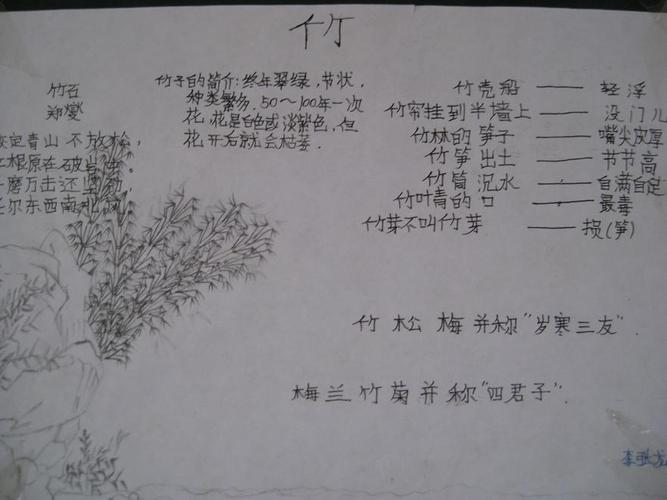 竹
竹石
郑燮
咬定青山不放松，
根原在破
磨万击还
尔东西南北风
竹子的简介：终年翠绿，节状，
种类繁多，50～100年一次
花，花是白色或淡紫色，但
花开后就会枯萎.
竹壳船——轻浮
竹帘挂到半墙上——没门儿
竹林的笋子——嘴尖皮厚
竹笋出土——节节高
竹筒沉水——自满自足
竹叶青的口——最毒
竹芽不叫竹芽——损(笋)
竹松梅并称"岁寒三友".
梅兰竹菊并称"四君子".